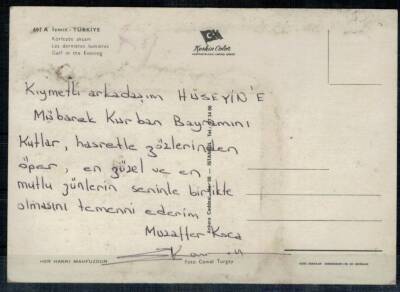 497 A İzmit - TÜRKİYE
Körfezde akşam
Les dernières lumières
Golf in the Evening
Keskin Color
Kıymetli arkadaşım HÜSEYİN'E
Mübarek Kurban Bayramını
Kutlar, hasretle gözlerinden
öper, en güzel ve en
mutlu günlerin seninle birlikte
olmasını temenni ederim
Muzaffer Koca
HER HAKKI MAHFUZDUR
Foto Cemal Turgay
Ankara Caddesi